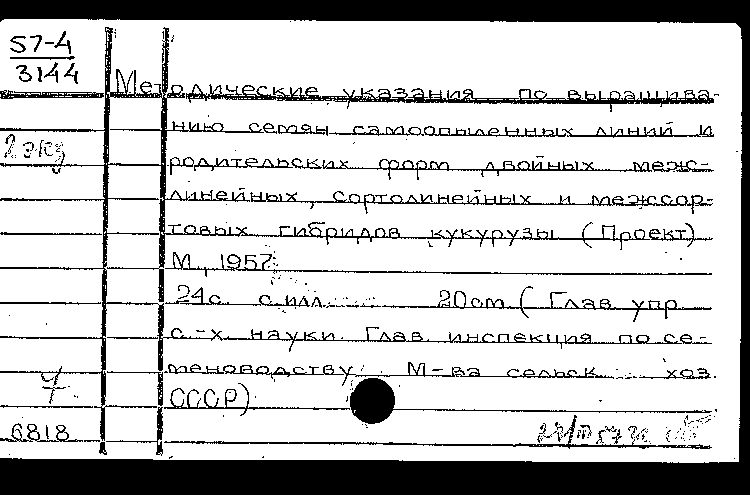 57-4
3144
Методические указания по выращива-
нию семян самоопыленных линий и
2 экз
родительских форм двойных меж-
линейных, сортолинейных и межсор-
товых гибридов кукурузы (Проект)
М., 1957.
24с. с илл. 20см. (Глав. упр.
с.-х. науки. Глав. инспекция по се-
меноводству. М-ва сельск. хоз.
СССР).
7
6818